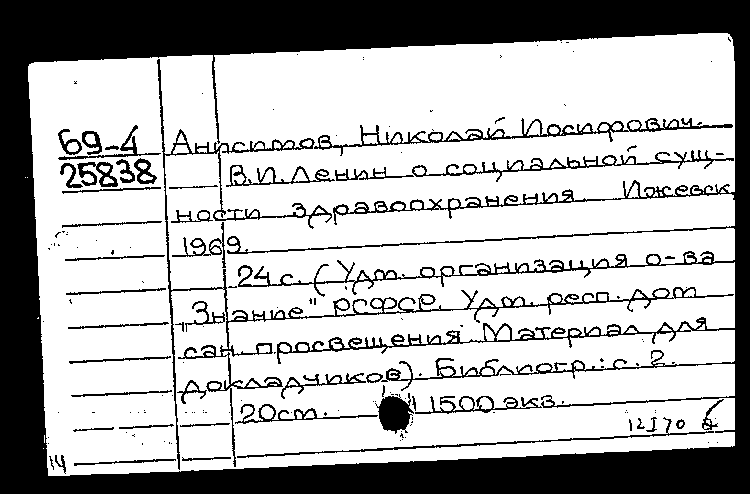 69-4
25838
Анисимов, Николай Иосифович.
В.И.Ленин о социальной сущ-
ности здравоохранения. Ижевск,
1969.
24 с. (Удм. организация о-ва
„Знание" РСФСР. Удм. респ. дом
сан. просвещения. Материал для
докладчиков). Библиогр.: с. 2.
20см. 1500 экз.
12I70
14